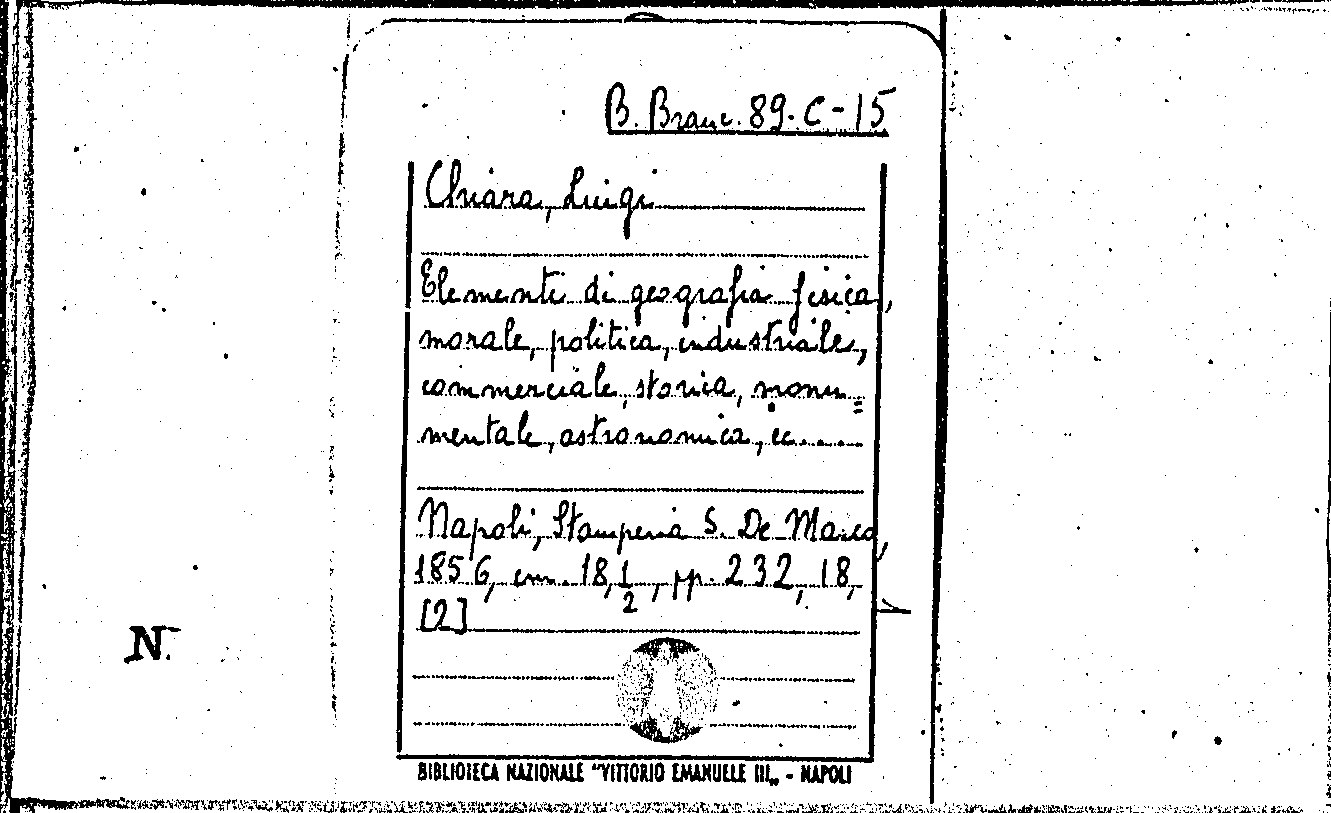 B. Branc. 89. C - 15
Chiara, Luigi
Elementi di geografia fisica,
morale, politica, industriale,
commerciale, storica, monu=
mentale, astronomica, ec....
Napoli, Stamperia S. De Marco,
1856, cm. 18,1/2, pp. 232, 18,
[2]
N.
BIBLIOTECA NAZIONALE "VITTORIO EMANUELE III„ - NAPOLI